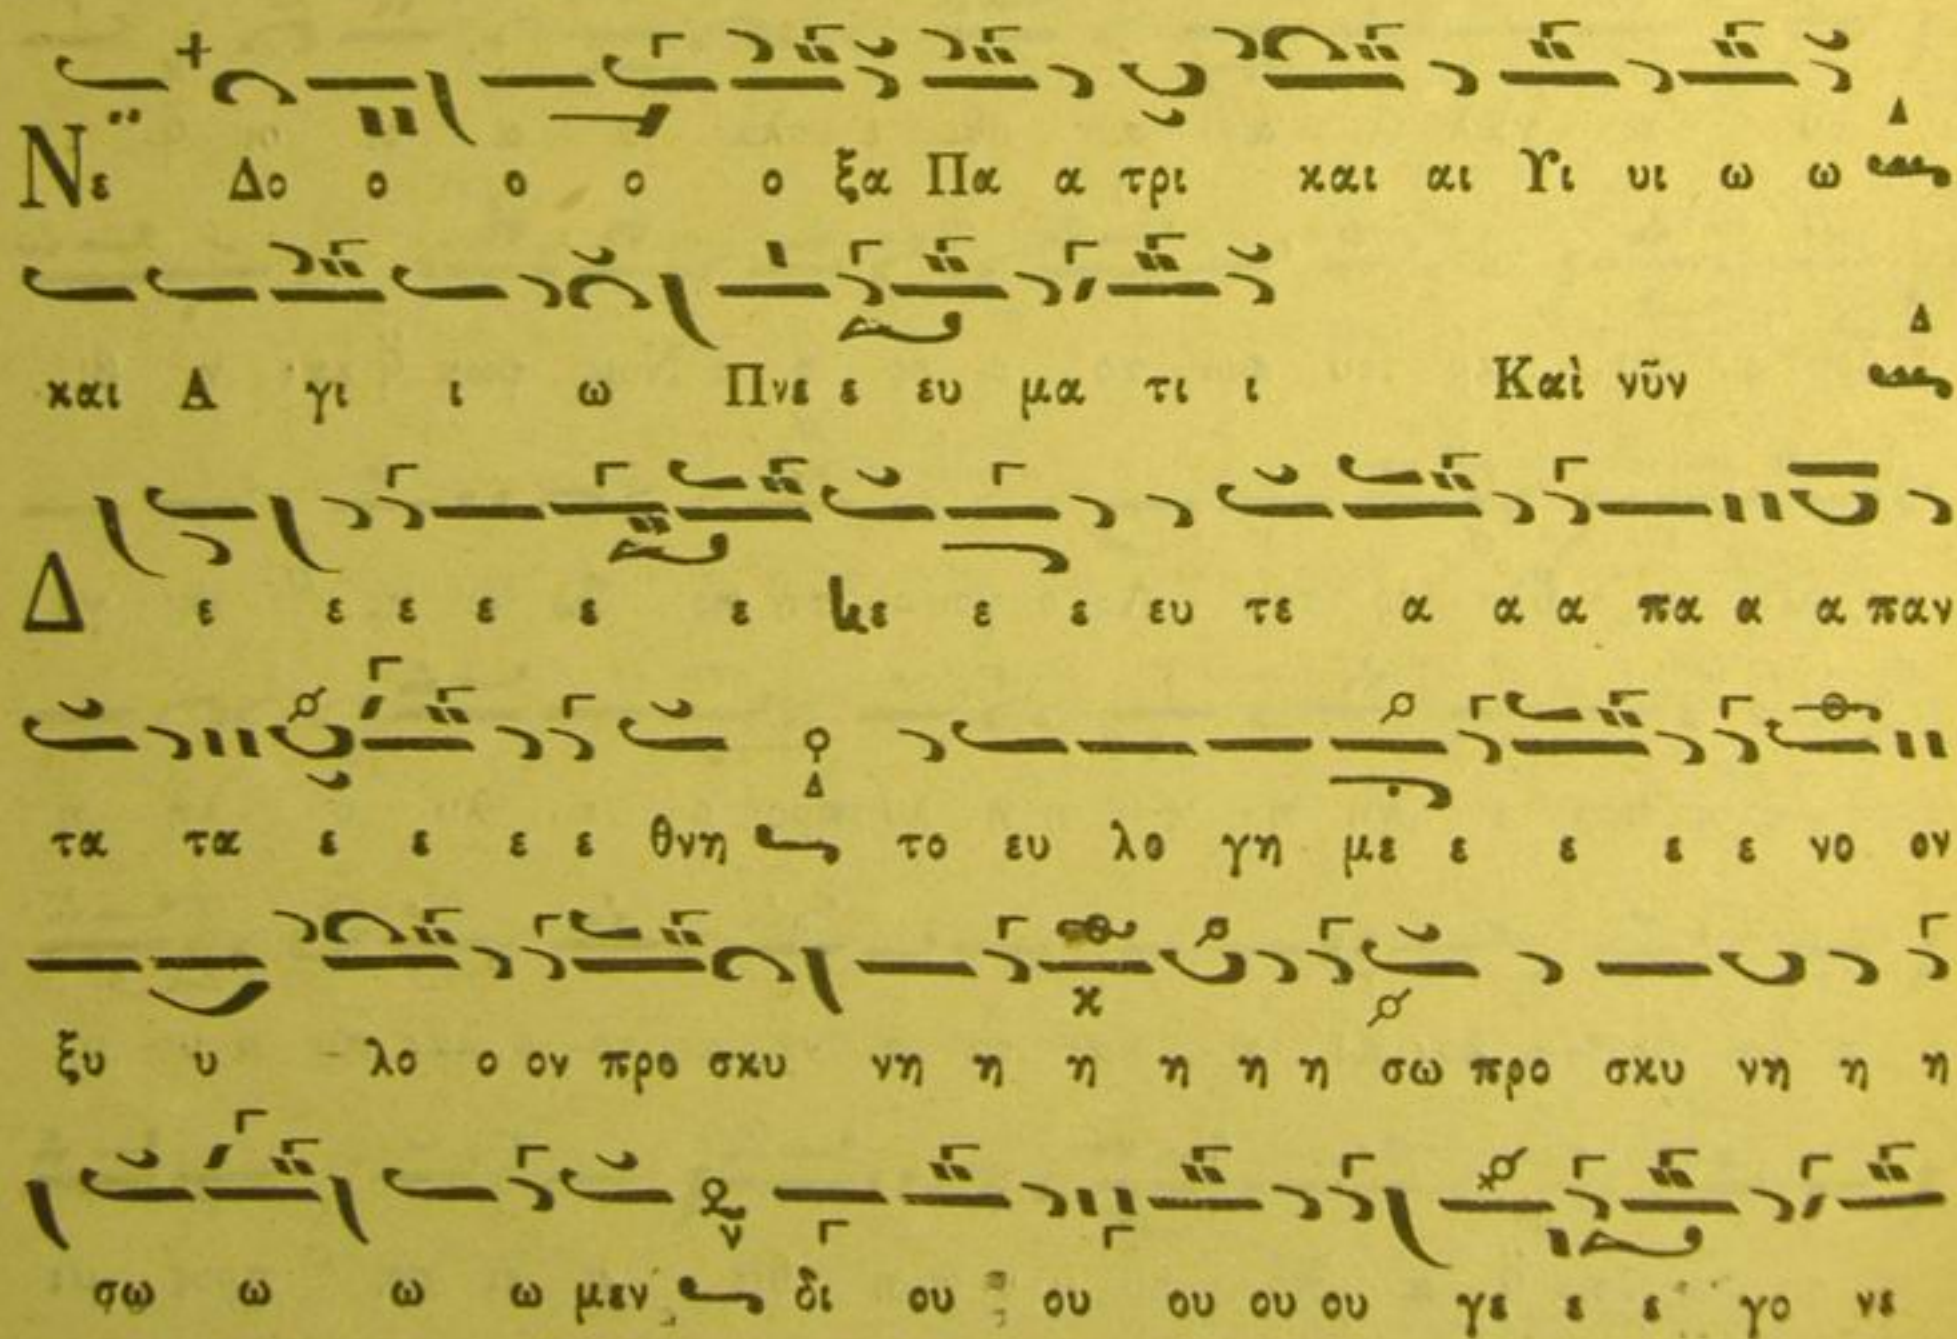 Νε Δο ο ο ο ο ξα Πα α τρι και αι Υι υι ω ω
και Α γι ι ω Πνε ε ευ μα τι ι Καὶ νῦν
Δ ε ε ε ε ε ε κε ε ε ευ τε α α α πα α α παν
τα τα ε ε ε ε θνη το ευ λο γη με ε ε ε ε νο ον
ξυ υ λο ο ον προ σκυ νη η η η η η σω προ σκυ νη η η
σω ω ω ω μεν δι ου ου ου ου ου γε ε ε γο νε